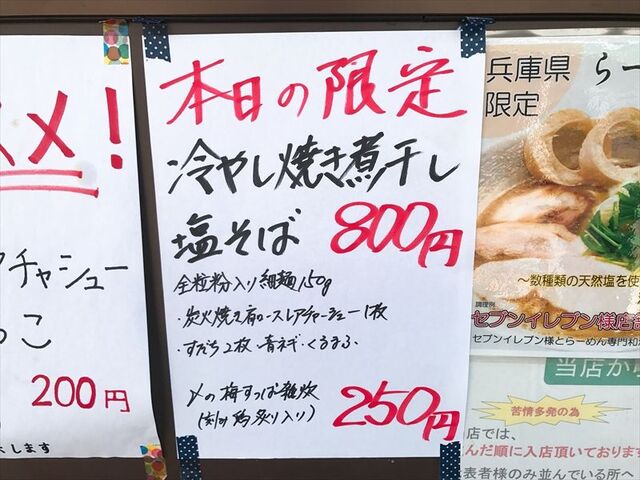 メ!
チャシュー
っこ
200円
します
本日の限定
冷やし焼き煮干し
塩そば 800円
全粒粉入り細麺150g
・炭火焼き肩ロースレアチャーシュー1枚
・すだち2枚・青ネギ・くるまふ
〆の梅すっぱ雑炊 250円
(刻み鳥炙り入り)
兵庫県
限定
らー
〜数種類の天然塩を使
調理例
セブンイレブン様店舗
セブンイレブン様とらーめん専門和
当店が
苦情多発の為
店では、
んだ順に入店頂いております
表者様のみ並んでいる所へ